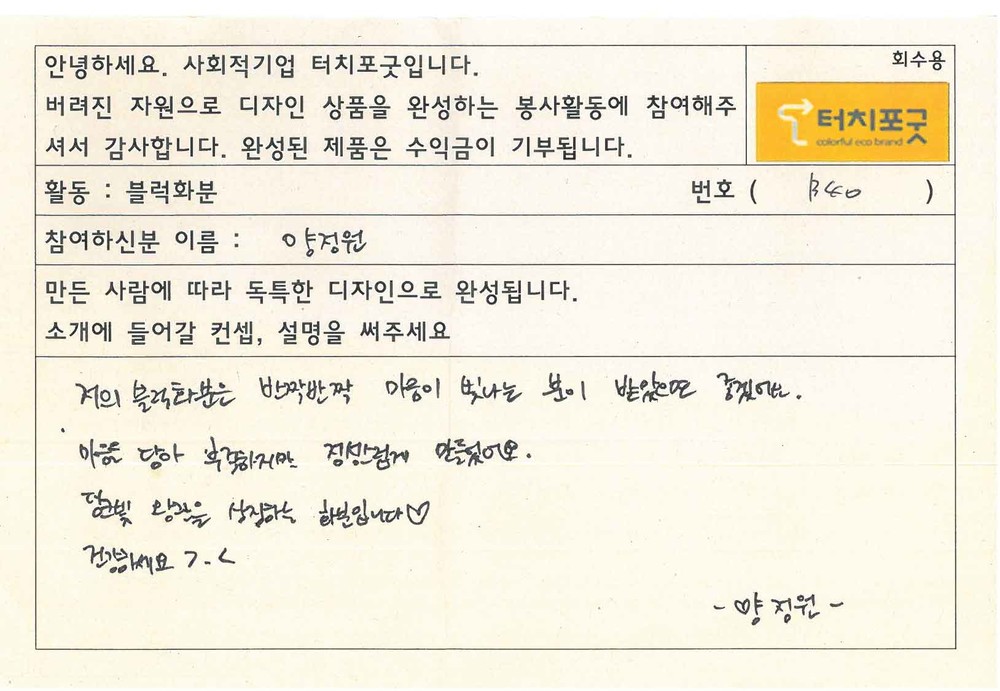 안녕하세요. 사회적기업 터치포굿입니다.
버려진 자원으로 디자인 상품을 완성하는 봉사활동에 참여해주
셔서 감사합니다. 완성된 제품은 수익금이 기부됩니다.
회수용
터치포굿
colorful eco brand
활동 : 블럭화분 번호 ( B40 )
참여하신분 이름 : 양정원
만든 사람에 따라 독특한 디자인으로 완성됩니다.
소개에 들어갈 컨셉, 설명을 써주세요
저의 블럭화분은 반짝반짝 마음이 빛나는 분이 받았으면 좋겠어요.
마음을 담아 부족하지만 정성스럽게 만들었어요.
상징하는 화분입니다♡
건강하세요 >.<
- 양정원 -